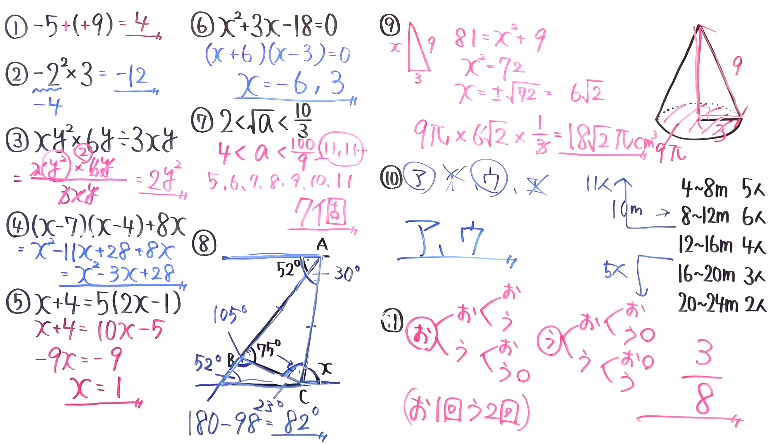 ① -5+(+9)=4
② -2²×3=-12
-4
③ xy²×6y÷3xy
2
= 2xy²×6y / 3xy = 2y²
④ (x-7)(x-4)+8x
= x²-11x+28+8x
= x²-3x+28
⑤ x+4=5(2x-1)
x+4=10x-5
-9x=-9
x=1
⑥ x²+3x-18=0
(x+6)(x-3)=0
x=-6, 3
⑦ 2<√a<10/3
4<a<100/9 11,11…
5, 6, 7, 8, 9, 10, 11
7個
⑧ A
52° 30°
105°
B 75°
52° x
C
23°
180-98=82°
⑨ x 9 3
81=x²+9
x²=72
x=±√72=6√2
9π×6√2×1/3=18√2πcm³
9
3
9π
⑩ ア イ ウ、エ
ア、ウ
11人 4~8m 5人
10m → 8~12m 6人
12~16m 4人
5人 16~20m 3人
20~24m 2人
⑪ お お お う
う お う○
う お お う○
う お○ う
3/8
(お1回う2回)